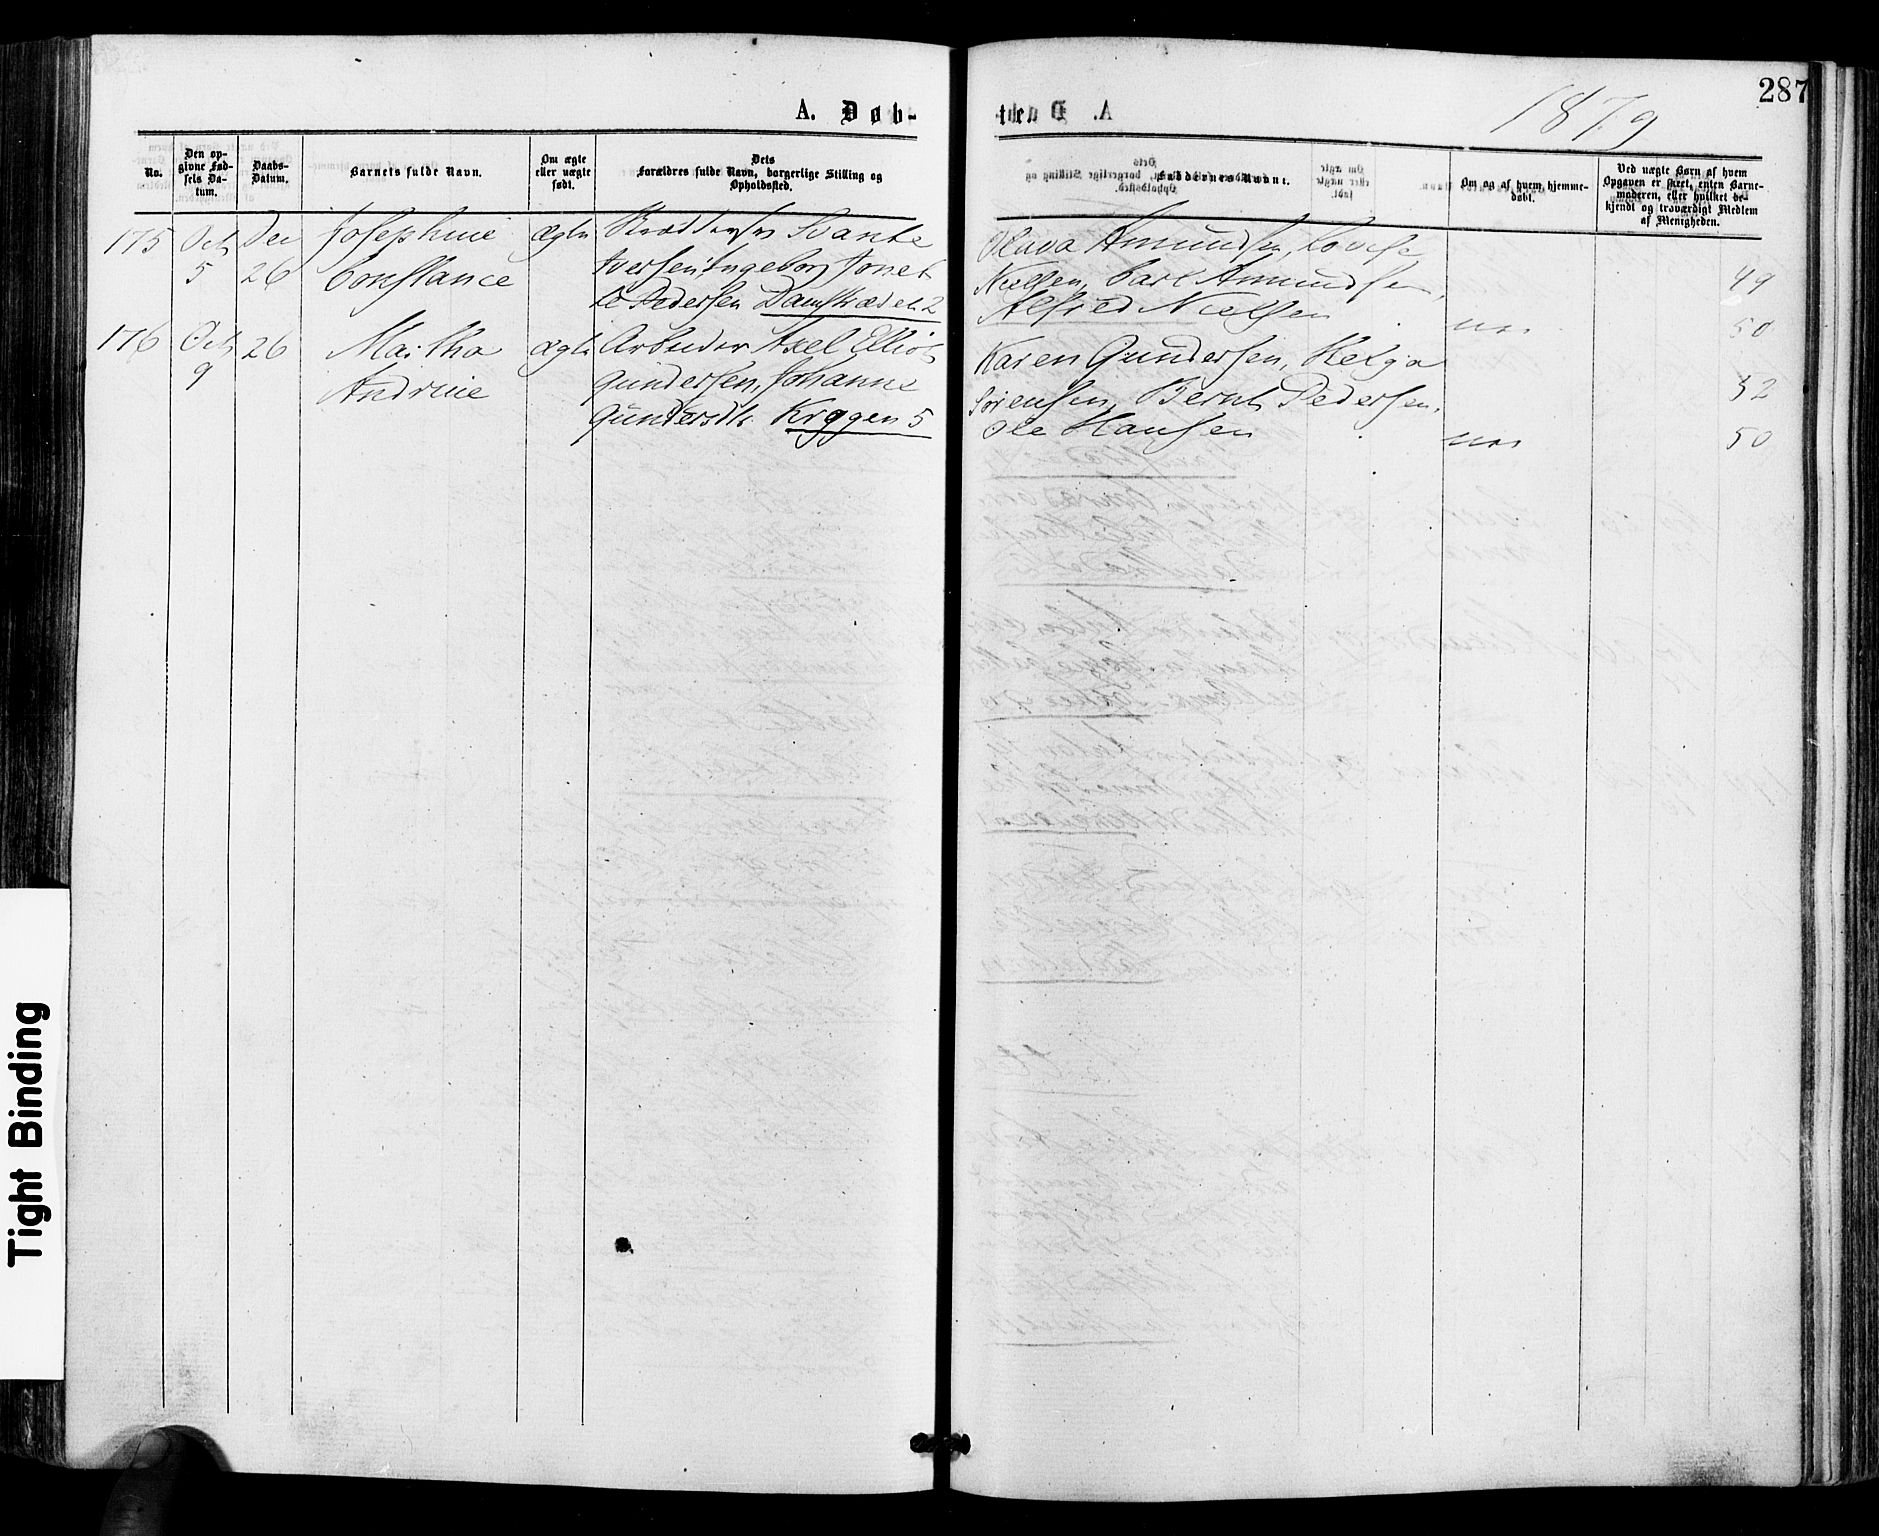 287
A. Døb-
1879
No.
Den op-
givne Fød-
sels Da-
tum.
Daabs-
Datum.
Barnets fulde Navn.
Om ægte
eller uægte
født.
Dets
Forældres fulde Navn, borgerlige Stilling og
Opholdssted.
Faddernes Navne.
Om og af hvem hjemme-
døbt.
Ved uægte Børn af hvem
Opgaven er skeet, enten Barne-
moderen, eller hvilket be-
kjendt og troværdigt Medlem
af Menigheden.
175
Oct
5
Dec
26
Josephine
Constance
ægte
Svante
Iversen, Ingeborg
Pedersen Damstrædet 2
Olava Amundsen, Lovise
Nielsen, Carl Amundsen,
Alfred Nielsen
49
50
176
Oct
9
26
Martha
Andrine
ægte
Arbeider Axel
Gundersen, Johanne
Gundersdtr. Kroggen 5
Karen Gundersen, Helga
Sørensen, Bernt Pedersen,
Ole Hansen
52
50
Tight Binding